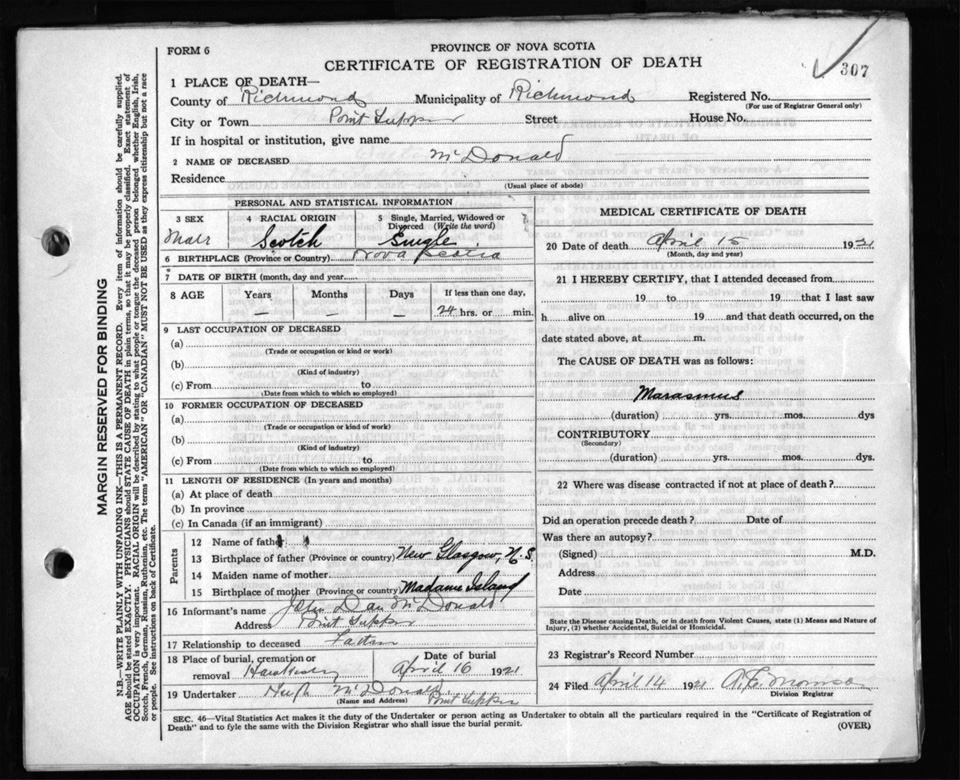 FORM 6
PROVINCE OF NOVA SCOTIA
CERTIFICATE OF REGISTRATION OF DEATH
307
1 PLACE OF DEATH—
County of Richmond Municipality of Richmond Registered No.
(For use of Registrar General only)
City or Town Point Tupper Street House No.
If in hospital or institution, give name
2 NAME OF DECEASED McDonald
Residence
(Usual place of abode)
PERSONAL AND STATISTICAL INFORMATION
3 SEX Male
4 RACIAL ORIGIN Scotch
5 Single, Married, Widowed or Divorced (Write the word) Single
6 BIRTHPLACE (Province or Country) Nova Scotia
7 DATE OF BIRTH (month, day and year)
8 AGE Years Months Days If less than one day,
— — — 24 hrs. or min.
9 LAST OCCUPATION OF DECEASED
(a)
(Trade or occupation or kind or work)
(b)
(Kind of industry)
(c) From to
(Date from which to which so employed)
10 FORMER OCCUPATION OF DECEASED
(a)
(Trade or occupation or kind of work)
(b)
(Kind of industry)
(c) From to
(Date from which to which so employed)
11 LENGTH OF RESIDENCE (In years and months)
(a) At place of death
(b) In province
(c) In Canada (if an immigrant)
Parents
12 Name of father
13 Birthplace of father (Province or country) New Glasgow, N.S.
14 Maiden name of mother
15 Birthplace of mother (Province or country) Madame Island
16 Informant's name John Dan McDonald
Address Point Tupper
17 Relationship to deceased Father
18 Place of burial, cremation or removal
Date of burial April 16 1921
19 Undertaker Hugh McDonald Point Tupper
(Name and Address)
MEDICAL CERTIFICATE OF DEATH
20 Date of death April 15 1921
(Month, day and year)
21 I HEREBY CERTIFY, that I attended deceased from
19 to 19 that I last saw
h alive on 19 and that death occurred, on the
date stated above, at m.
The CAUSE OF DEATH was as follows:
Marasmus
(duration) yrs. mos. dys
CONTRIBUTORY
(Secondary)
(duration) yrs. mos. dys.
22 Where was disease contracted if not at place of death?
Did an operation precede death? Date of
Was there an autopsy?
(Signed) M.D.
Address
Date
State the Disease causing Death, or in death from Violent Causes, state (1) Means and Nature of
Injury, (2) whether Accidental, Suicidal or Homicidal.
23 Registrar's Record Number
24 Filed April 14 1921
Division Registrar
SEC. 46—Vital Statistics Act makes it the duty of the Undertaker or person acting as Undertaker to obtain all the particulars required in the "Certificate of Registration of
Death" and to fyle the same with the Division Registrar who shall issue the burial permit. (OVER)
MARGIN RESERVED FOR BINDING
N.B.—WRITE PLAINLY WITH UNFADING INK—THIS IS A PERMANENT RECORD. Every item of information should be carefully supplied.
AGE should be stated EXACTLY. PHYSICIANS should STATE CAUSE OF DEATH in plain terms, so that it may be properly classified. Exact statement of
OCCUPATION is very important. RACIAL ORIGIN will be described by stating to what people or tongue the deceased person belonged whether English, Irish,
Scotch, French, German, Russian, Ruthenian, etc. The terms "AMERICAN" OR "CANADIAN" MUST NOT BE USED as they express citizenship but not a race
or people. See instructions on back of Certificate.